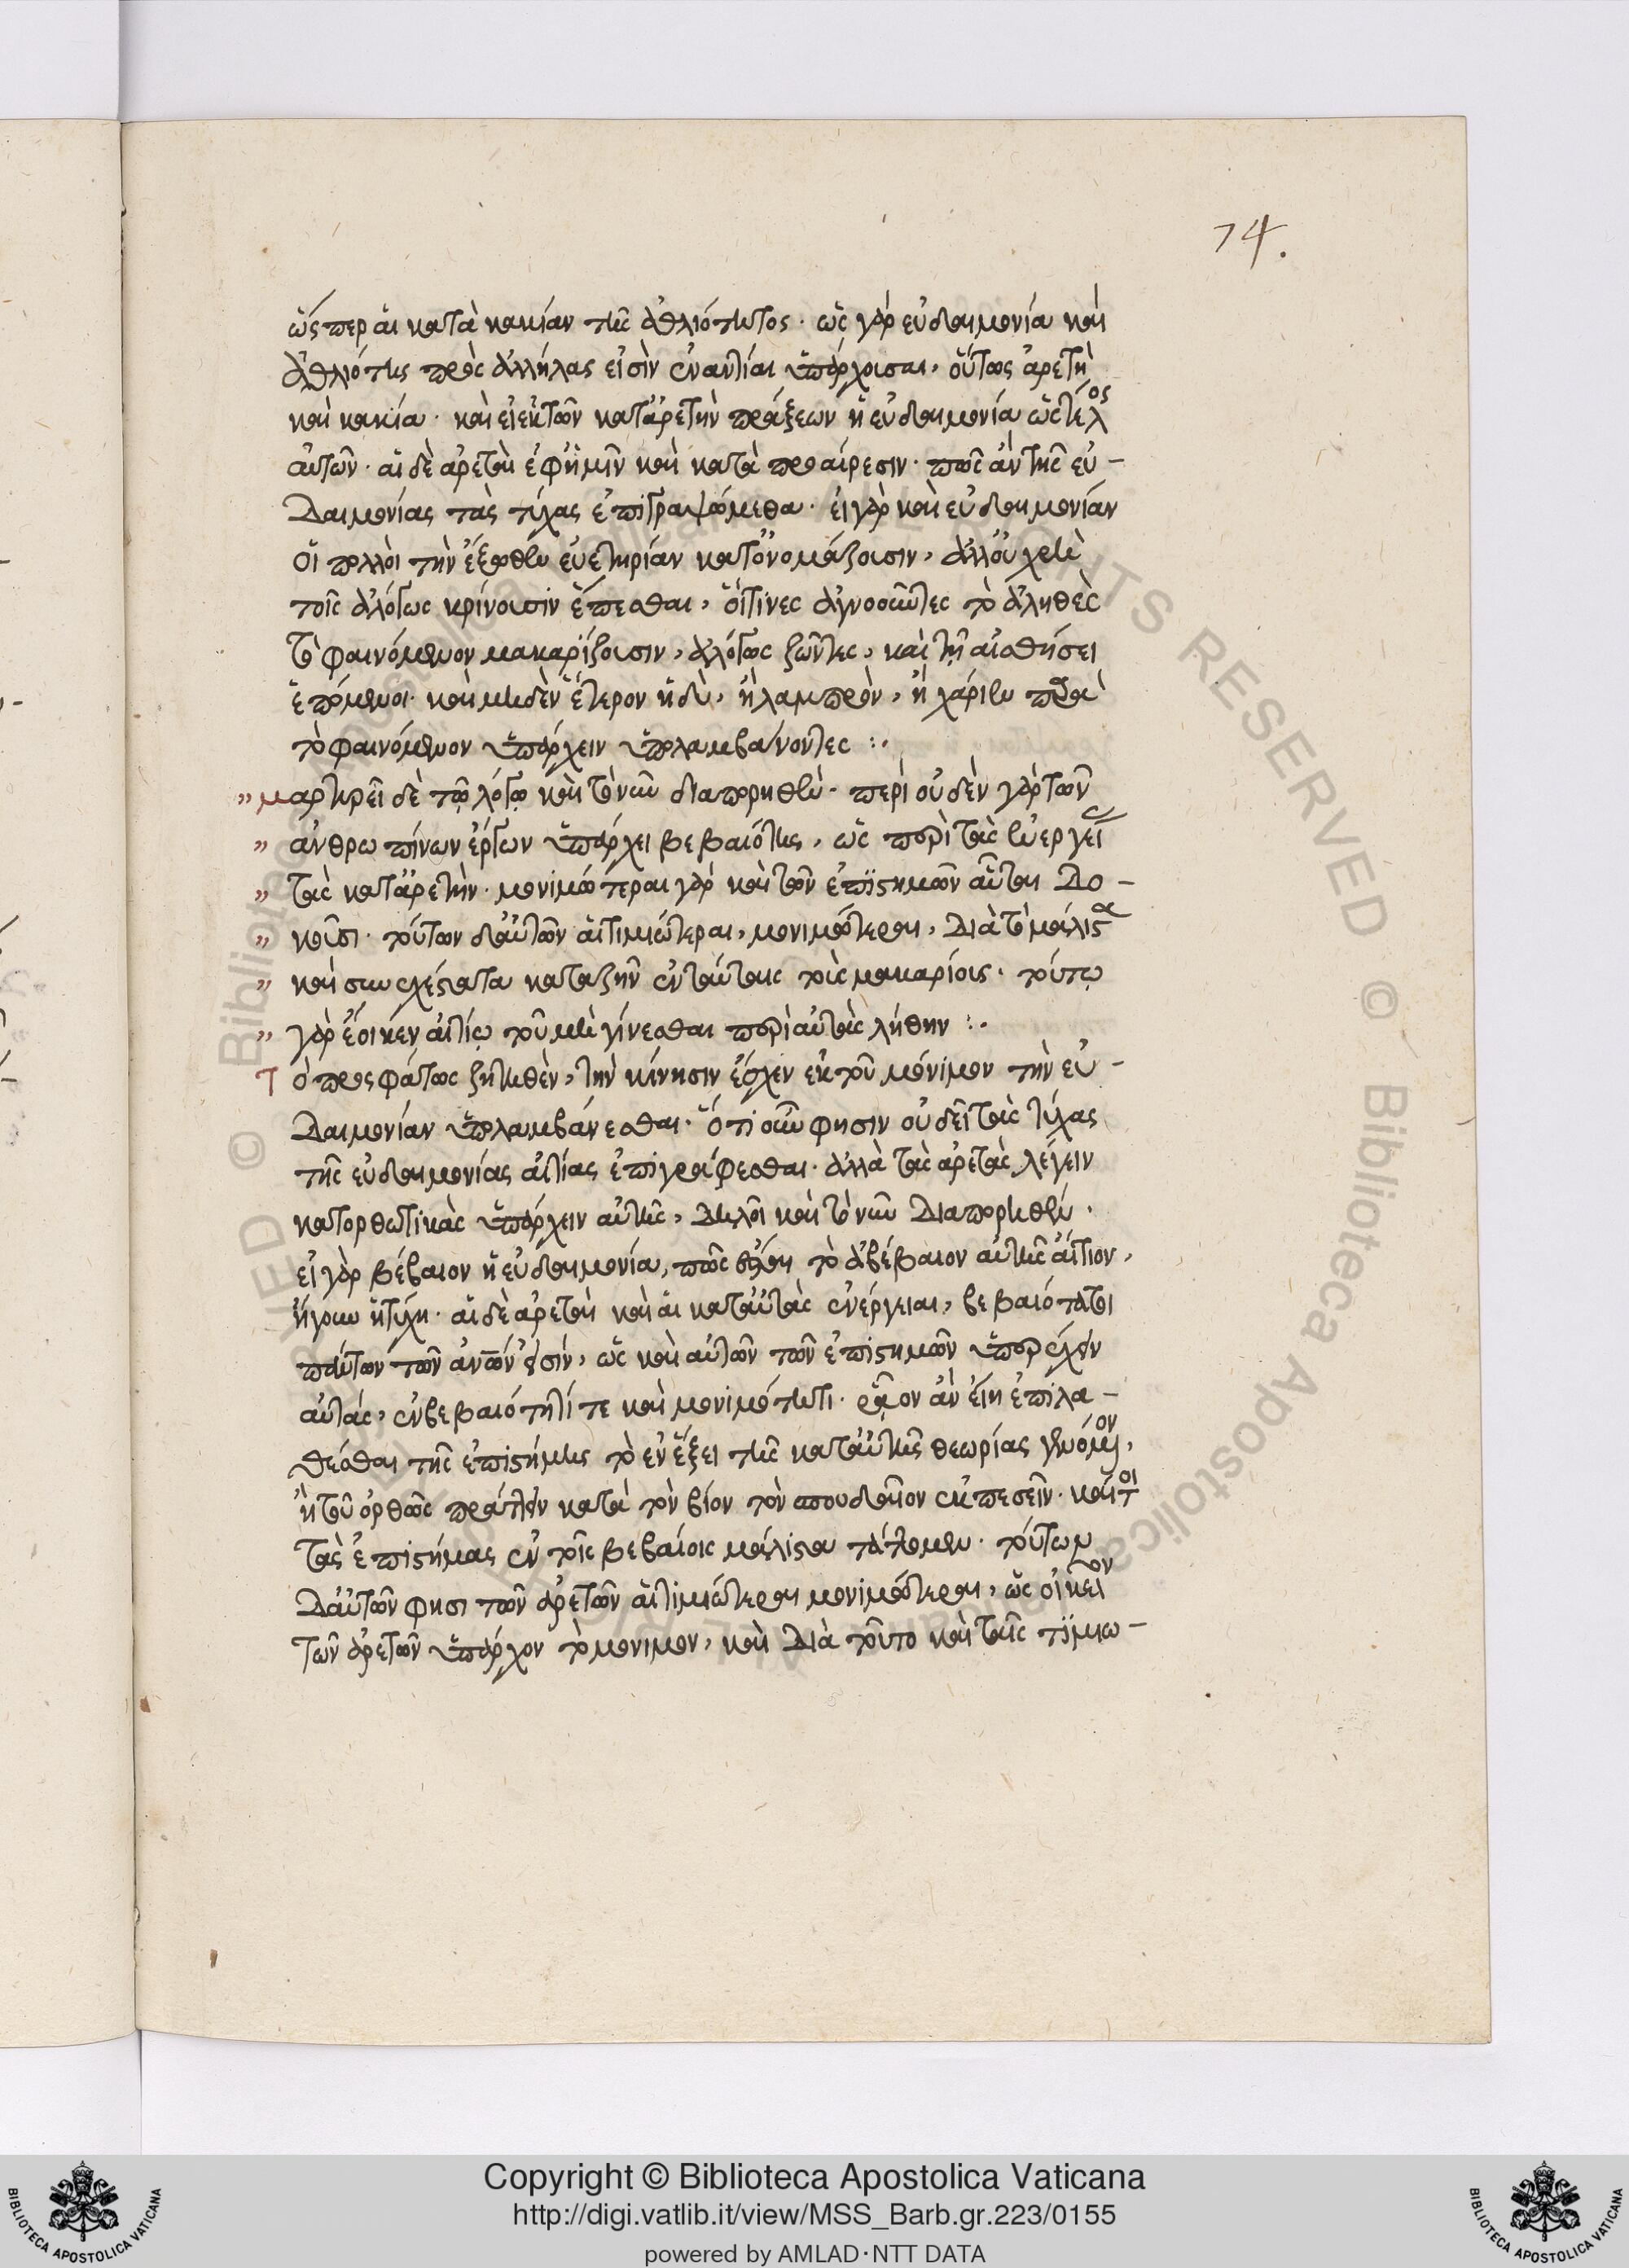 74.
ὥσπερ αἱ κατὰ κακίαν τῆς ἀθλιότητος. ὡς γὰρ εὐδαιμονία καὶ
ἀθλιότης πρὸς ἀλλήλας εἰσὶν ἐναντίαι ὑπάρχουσαι, οὕτως ἀρετὴ
καὶ κακία. καὶ εἰ ἐκ τῶν κατ' ἀρετὴν πράξεων ἡ εὐδαιμονία ὡς τέλος
αὐτῶν. αἱ δὲ ἀρεταὶ ἐφ' ἡμῖν καὶ κατὰ προαίρεσιν. πῶς ἂν τῆς εὐ-
δαιμονίας τὰς τύχας ἐπιγραψόμεθα. εἰ γὰρ καὶ εὐδαιμονίαν
οἱ πολλοὶ τὴν ἔξωθεν εὐετηρίαν κατονομάζουσιν, ἀλλ' οὐ χρὴ
τοῖς ἀλόγως κρίνουσιν ἕπεσθαι, οἵτινες ἀγνοοῦντες τὸ ἀληθὲς
τὸ φαινόμενον μακαρίζουσιν, ἀλόγως ζῶντες, καὶ τῇ αἰσθήσει
ἑπόμενοι. καὶ μηδὲν ἕτερον ἡδὺ, ἢ λαμπρὸν, ἢ χάριεν παρὰ
τὸ φαινόμενον ὑπάρχειν ὑπολαμβάνοντες :.
" μαρτυρεῖ δὲ τῷ λόγῳ καὶ τὸ νῦν διαπορηθὲν. περὶ οὐδὲν γὰρ τῶν
" ἀνθρωπίνων ἔργων ὑπάρχει βεβαιότης, ὡς περὶ τὰς ἐνεργείας
" τὰς κατ' ἀρετὴν. μονιμώτεραι γὰρ καὶ τῶν ἐπιστημῶν αὗται δο-
" κοῦσι. τούτων δ' αὐτῶν αἱ τιμιώτεραι, μονιμώτεραι, διὰ τὸ μάλιστα
" καὶ συνεχέστατα καταζῆν ἐν ταύταις τοὺς μακαρίους. τούτῳ
" γὰρ ἔοικεν αἰτίῳ τοῦ μὴ γίνεσθαι περὶ αὐτὰς λήθην :.
Τὸ προσφάτως ζητηθὲν, τὴν κίνησιν ἔσχεν ἐκ τοῦ μόνιμον τὴν εὐ-
δαιμονίαν ὑπολαμβάνεσθαι. ὅτι οὖν φησιν οὐ δεῖ τὰς τύχας
τῆς εὐδαιμονίας αἰτίας ἐπιγράφεσθαι. ἀλλὰ τὰς ἀρετὰς λέγειν
κατορθωτικὰς ὑπάρχειν αὐτῆς, δηλοῖ καὶ τὸ νῦν διαπορηθέν.
εἰ γὰρ βέβαιον ἡ εὐδαιμονία, πῶς ἔσται τὸ ἀβέβαιον αὐτῆς αἴτιον,
ἤγουν ἡ τύχη. αἱ δὲ ἀρεταὶ καὶ αἱ κατ' αὐτὰς ἐνέργειαι, βεβαιόταται
πάντων τῶν ἀνων εἰσίν, ὡς καὶ αὐτῶν τῶν ἐπιστημῶν ὑπερέχειν
αὐτάς, ἐν βεβαιότητί τε καὶ μονιμότητι. ῥᾷον ἂν εἴη ἐπιλα-
θέσθαι τῆς ἐπιστήμης τὸ ἐν ἕξει τῆς κατ' αὐτῆς θεωρίας γενόμενον,
ἢ τοῦ ὀρθῶς πράττειν κατὰ τὸν βίον τὸν σπουδαῖον ἐκπεσεῖν. καίτοι
τὰς ἐπιστήμας ἐν τοῖς βεβαίοις μάλιστα τάττομεν. τούτων
δ' αὐτῶν φησι τῶν ἀρετῶν αἱ τιμιώτεραι μονιμώτεραι, ὡς οἰκεῖον
τῶν ἀρετῶν ὑπάρχον τὸ μόνιμον, καὶ διὰ τοῦτο καὶ ταῖς τιμιω-
Copyright © Biblioteca Apostolica Vaticana
http://digi.vatlib.it/view/MSS_Barb.gr.223/0155
powered by AMLAD·NTT DATA